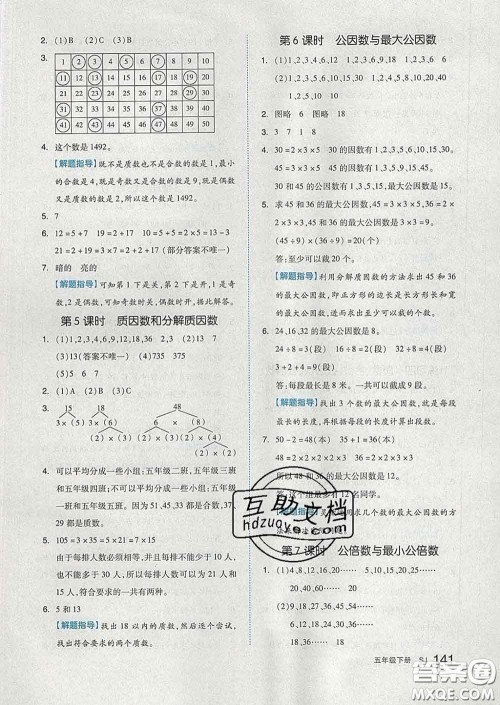 2. (1)B (2)A (3)C
3.
1 2 3 4 5 6 7 8 9 10
11 12 13 14 15 16 17 18 19 20
21 22 23 24 25 26 27 28 29 30
31 32 33 34 35 36 37 38 39 40
41 42 43 44 45 46 47 48 49 50
4. 这个数是1492。
【解题指导】 既不是质数也不是合数的数是1,最小
的合数是4,既是奇数又是合数的是9,既是偶数
又是质数的是2,所以这个数是1492。
5. 7
6. 10=3+7 12=5+7 15=2+13 18=5+13
20=3+17 24=7+17 (部分答案不唯一)
7. 暗的 亮的
【解题指导】 可知第1下是关,第2下是开,1是奇
数,2是偶数,可知奇数时关,偶数时开,据此解答。
第5课时 质因数和分解质因数
1. (1)1,2,3,4,6,9,12,18,36 (2)2 13
(3)13(答案不唯一) (4)735 375
(5)5 6 7
2. (1)B (2)A (3)C
3. 15 18 48
3×5 3×(6) 6 × (8)
(2)×(3) (2)×(3) (2)×(4)
(2)×(2)
4. 可以平均分成一些小组:五年级二班,五年级三班
和五年级四班。不可以平均分成一些小组:五年
级一班。因为51,45,33都是合数,可以平均分组,
29是质数。
5. 105=3×5×7 3×5=15(人)
答:每排有15人。
由于每排人数必须相等,并且只能是105的因数,
由于每排人数不能少于10人,不能多于20人,所
以每排的人数只有15人这一种可能。
6. 5和13
【解题指导】 从18以内的质数找,然后逐个尝试,
找出满足要求的两个数。
第6课时 公因数与最大公因数
1. (1)1,2,3,4,6,12 1,2,3,6,9,18 1,2,3,6 6
(2)1,2,5,10 1,2,3,4,6,8,12,24
2. 图略 6 图略 18
3. 3 7 1 8
4. 30=2×3×5 30的因数有1,2,3,5,6,10,15,30。
45=3×3×5 45的因数有1,3,5,9,15,45。
30和45的公因数有1,3,5,15,最大公因数是15。
5. 求45和36的最大公因数,45=3×3×5,36=
2×2×3×3,最大公因数是3×3=9。
(45÷9)×(36÷9)=20(块)
答:至少可以裁20块。
【解题指导】 利用分解质因数的方法求出45和36
的最大公因数,即正方形的边长是长方形长和宽
的最大公因数,进而求出至少可以裁的个数。
6. 24,16,32的最大公因数是8。
24÷8=3(段) 16÷8=2(段)
32÷8=4(段)
答:每段最长是8米,一共可以裁成9段。
【解题指导】 找出3个数的最大公因数就是段长,
再根据每段的长度计算出段数。
7. 50-2=48(本) 35+1=36(本)
所以48和36的最大公因数是12。
答:这个组最多有12名同学。
第7课时 公倍数与最小公倍数
1. (1)4,8,12,16,20…… 5,10,15,20,25……
20,40,60……
(2)9,18,27,36…… 6,12,18,24,30,36……
18,36……
互助文档
hdzuoye.com
五年级下册 SJ 141
答案圈
MXQE.COM